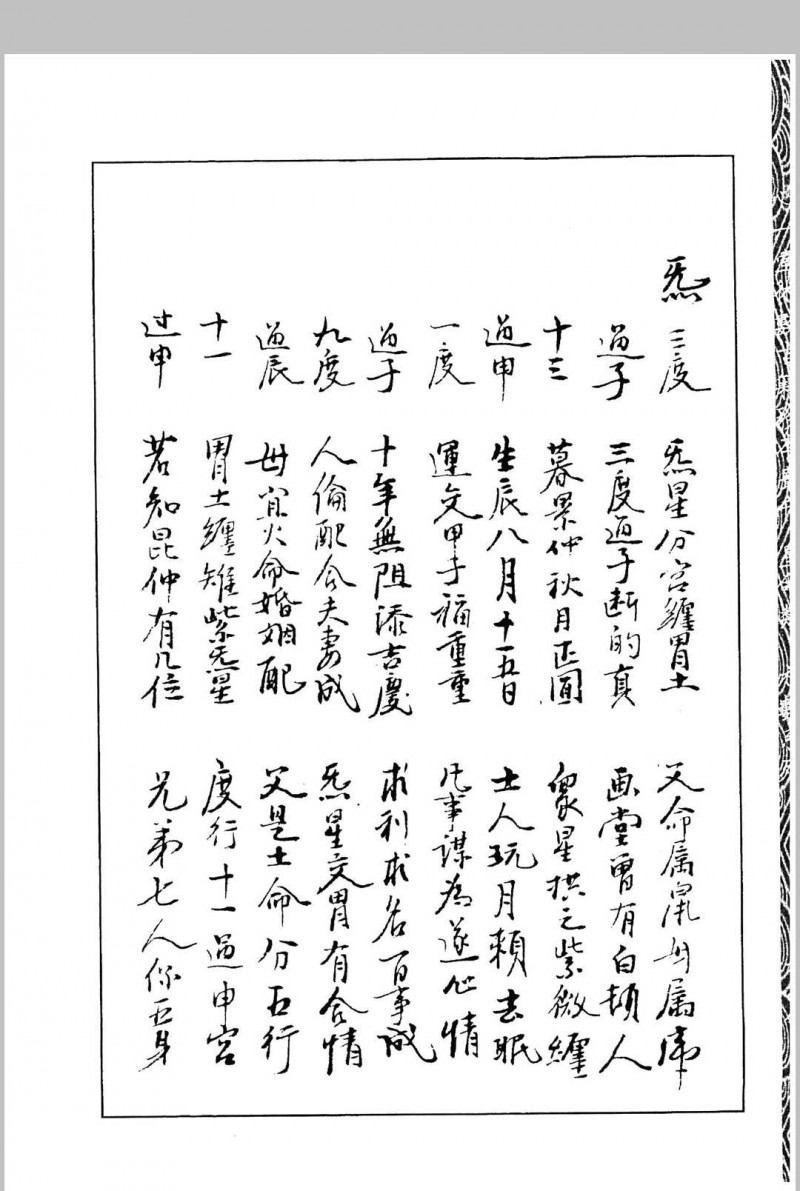 炁 三度 炁星分宮纏胃土 父命属鼠母属虎
過子 三度過子断的真 画堂曾有白頭人
十三 暮景仲秋月正圓 眾星拱之紫微纏
過申 生辰八月十五日 士人玩月賴去眠
一度 運交甲子福重重 凡事謀為遂心情
過子 十年無阻添吉慶 求利求名百事成
九度 人倫配合夫妻成 炁星交胃有合情
過辰 母宜火命婚姻配 父是土命分五行
十一 胃土纏雉紫炁星 度行十一過申宮
过申 若知昆仲有几位 兄弟七人你五身